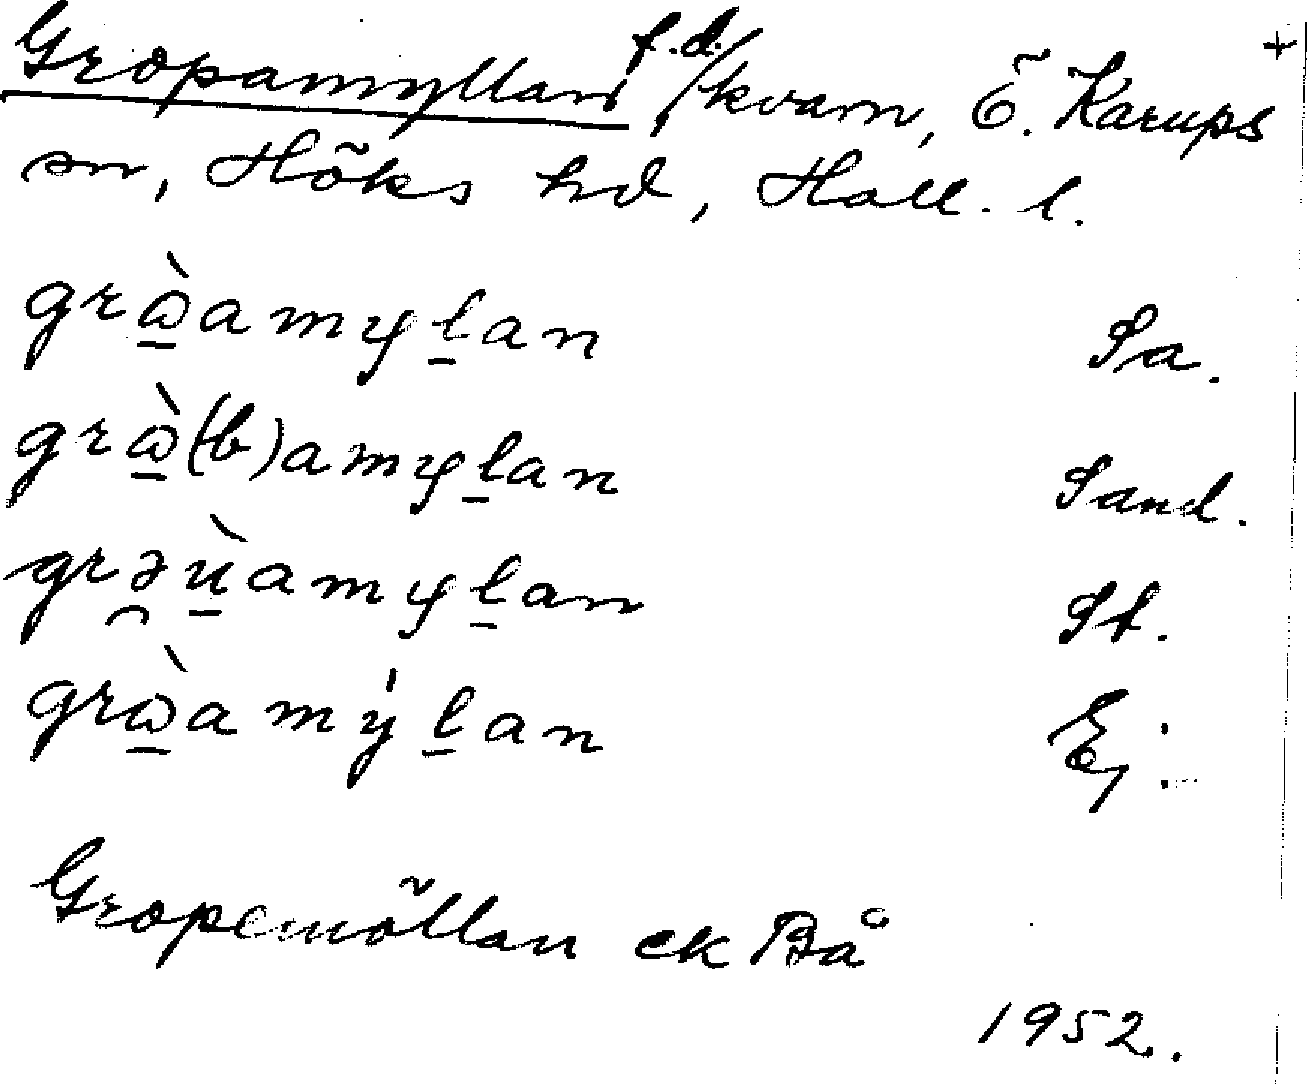 Gropamyllan, f.d./kvarn, Ö. Karups +
sn, Höks hd, Hall. l.
grɷ̠̀amyl̠an Sa.
grɷ̠̀(b)amyl̠an Sand.
grə̯ù̠amyl̠an St.
grɷ̠̀amýl̠an Ej.
Gropemöllan ek Bå
1952.